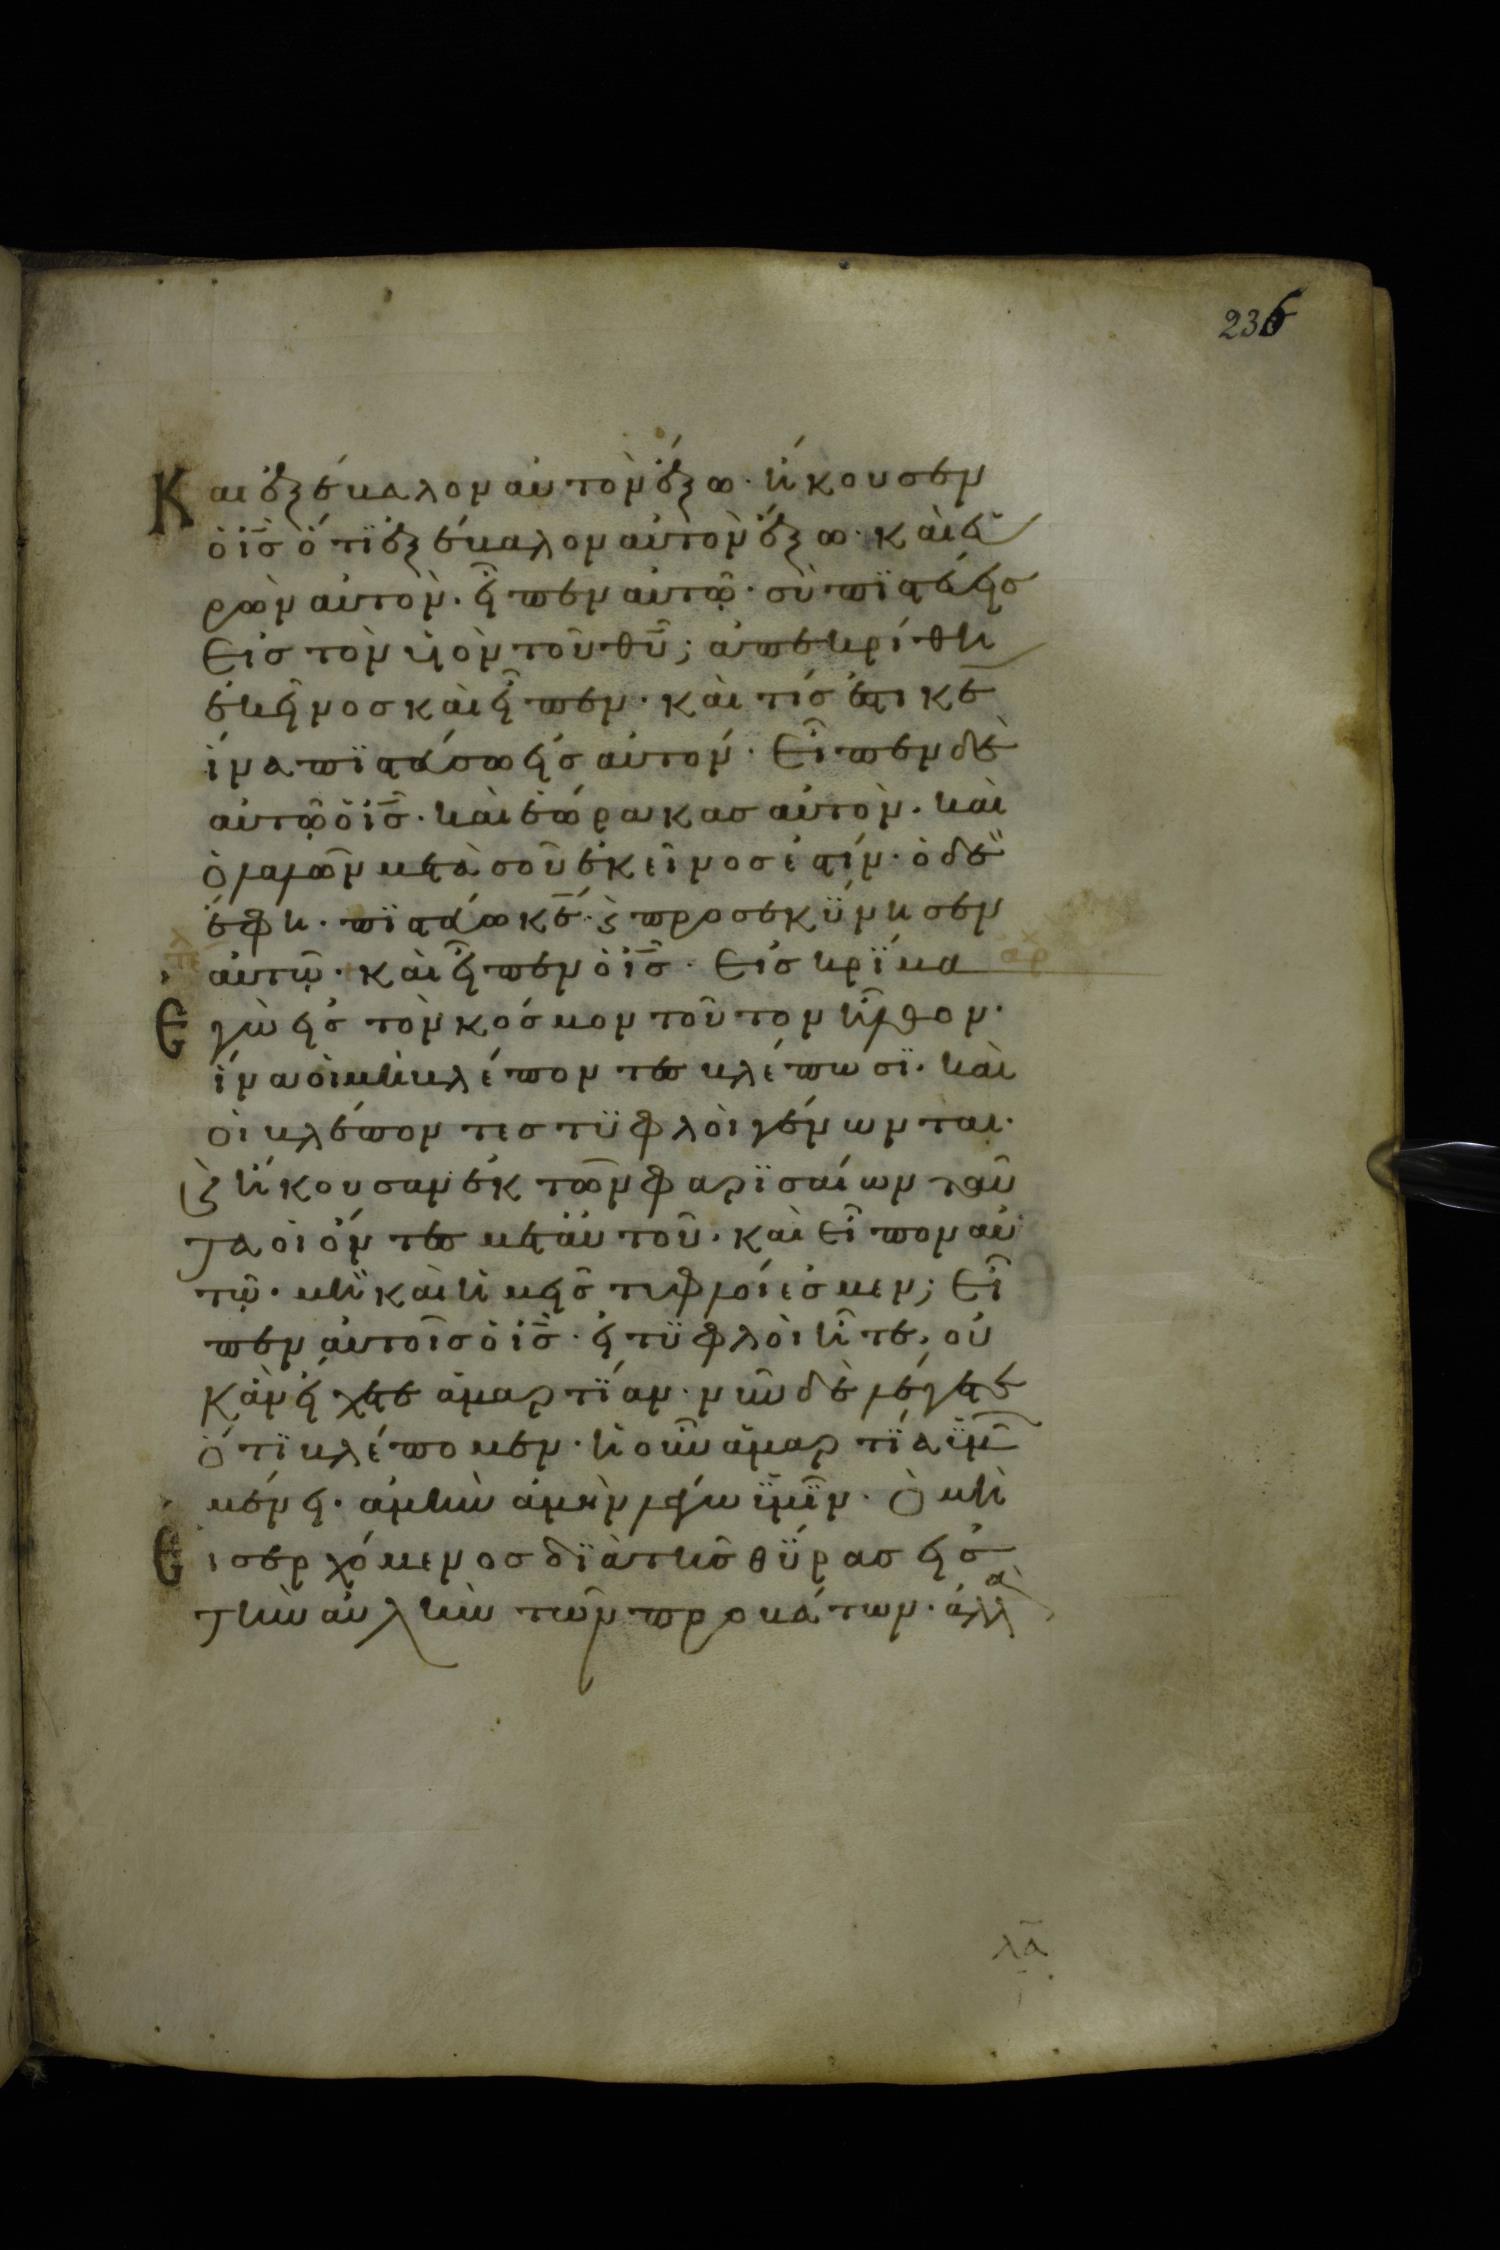 236
Και ἐξέβαλον αὐτὸν ἔξω· ἤκουσεν
ὁ ἰ̅ς̅ ὅτϊ ἐξέβαλον αὐτὸν ἔξω· καὶ εὑ
ρὼν αὐτὸν· εἶπεν αὐτῶ· σὺ πϊστεύεις
εἰς τὸν υἱὸν τοῦ θ̅υ̅; ἀπεκρίθη
ἐκεῖνος καὶ εἶπεν· καὶ τίς ἐστι κ̅ε̅
ἵνα πϊστεύσω εἰς αὐτόν· εἶπεν δὲ
αὐτῶ ὁ ἰ̅ς̅· καὶ ἑώρακας αὐτὸν· καὶ
ὁ λαλῶν μετὰ σοῦ ἐκεῖνος ἐστίν· ὁ δὲ
ἔφη· πϊστεύω κ̅ε̅· ϗ προσεκϋνησεν
αὐτῶ· καὶ εἶπεν ὁ ἰ̅ς̅· εἰς κρϊμα αρχ
Εγὼ εἰς τὸν κόσμον τοῦτον ἦλθον·
ἵνα οἱ μὴ βλέποντες βλέπωσϊ· καὶ
οἱ βλέποντες τϋφλοὶ γένωνται·
ϗ ἤκουσαν ἐκ τῶν φαρϊσαίων ταῦ
τα οἱ ὄντες μετ' αὐτοῦ· καὶ εἶπον αὐ
τῶ· μὴ καὶ ἡμεῖς τυφλοί ἐσμεν; εἶ
πεν αὐτοῖς ὁ ἰ̅ς̅· εἰ τϋφλοὶ ἦτε, οὐ
κ ἂν εἴχετε ἁμαρτϊαν· νῦν δὲ λέγετε
ὅτϊ βλέπομεν· ἡ οὖν ἁμαρτϊα ὑμῶν
μένει· ἀμὴν ἀμὴν λέγω ϋμῖν· ὁ μὴ
Εισερχόμενος δϊὰ τῆς θϋρας εἰς
τὴν αὐλὴν τῶν προβάτων· ἀλλὰ
λα